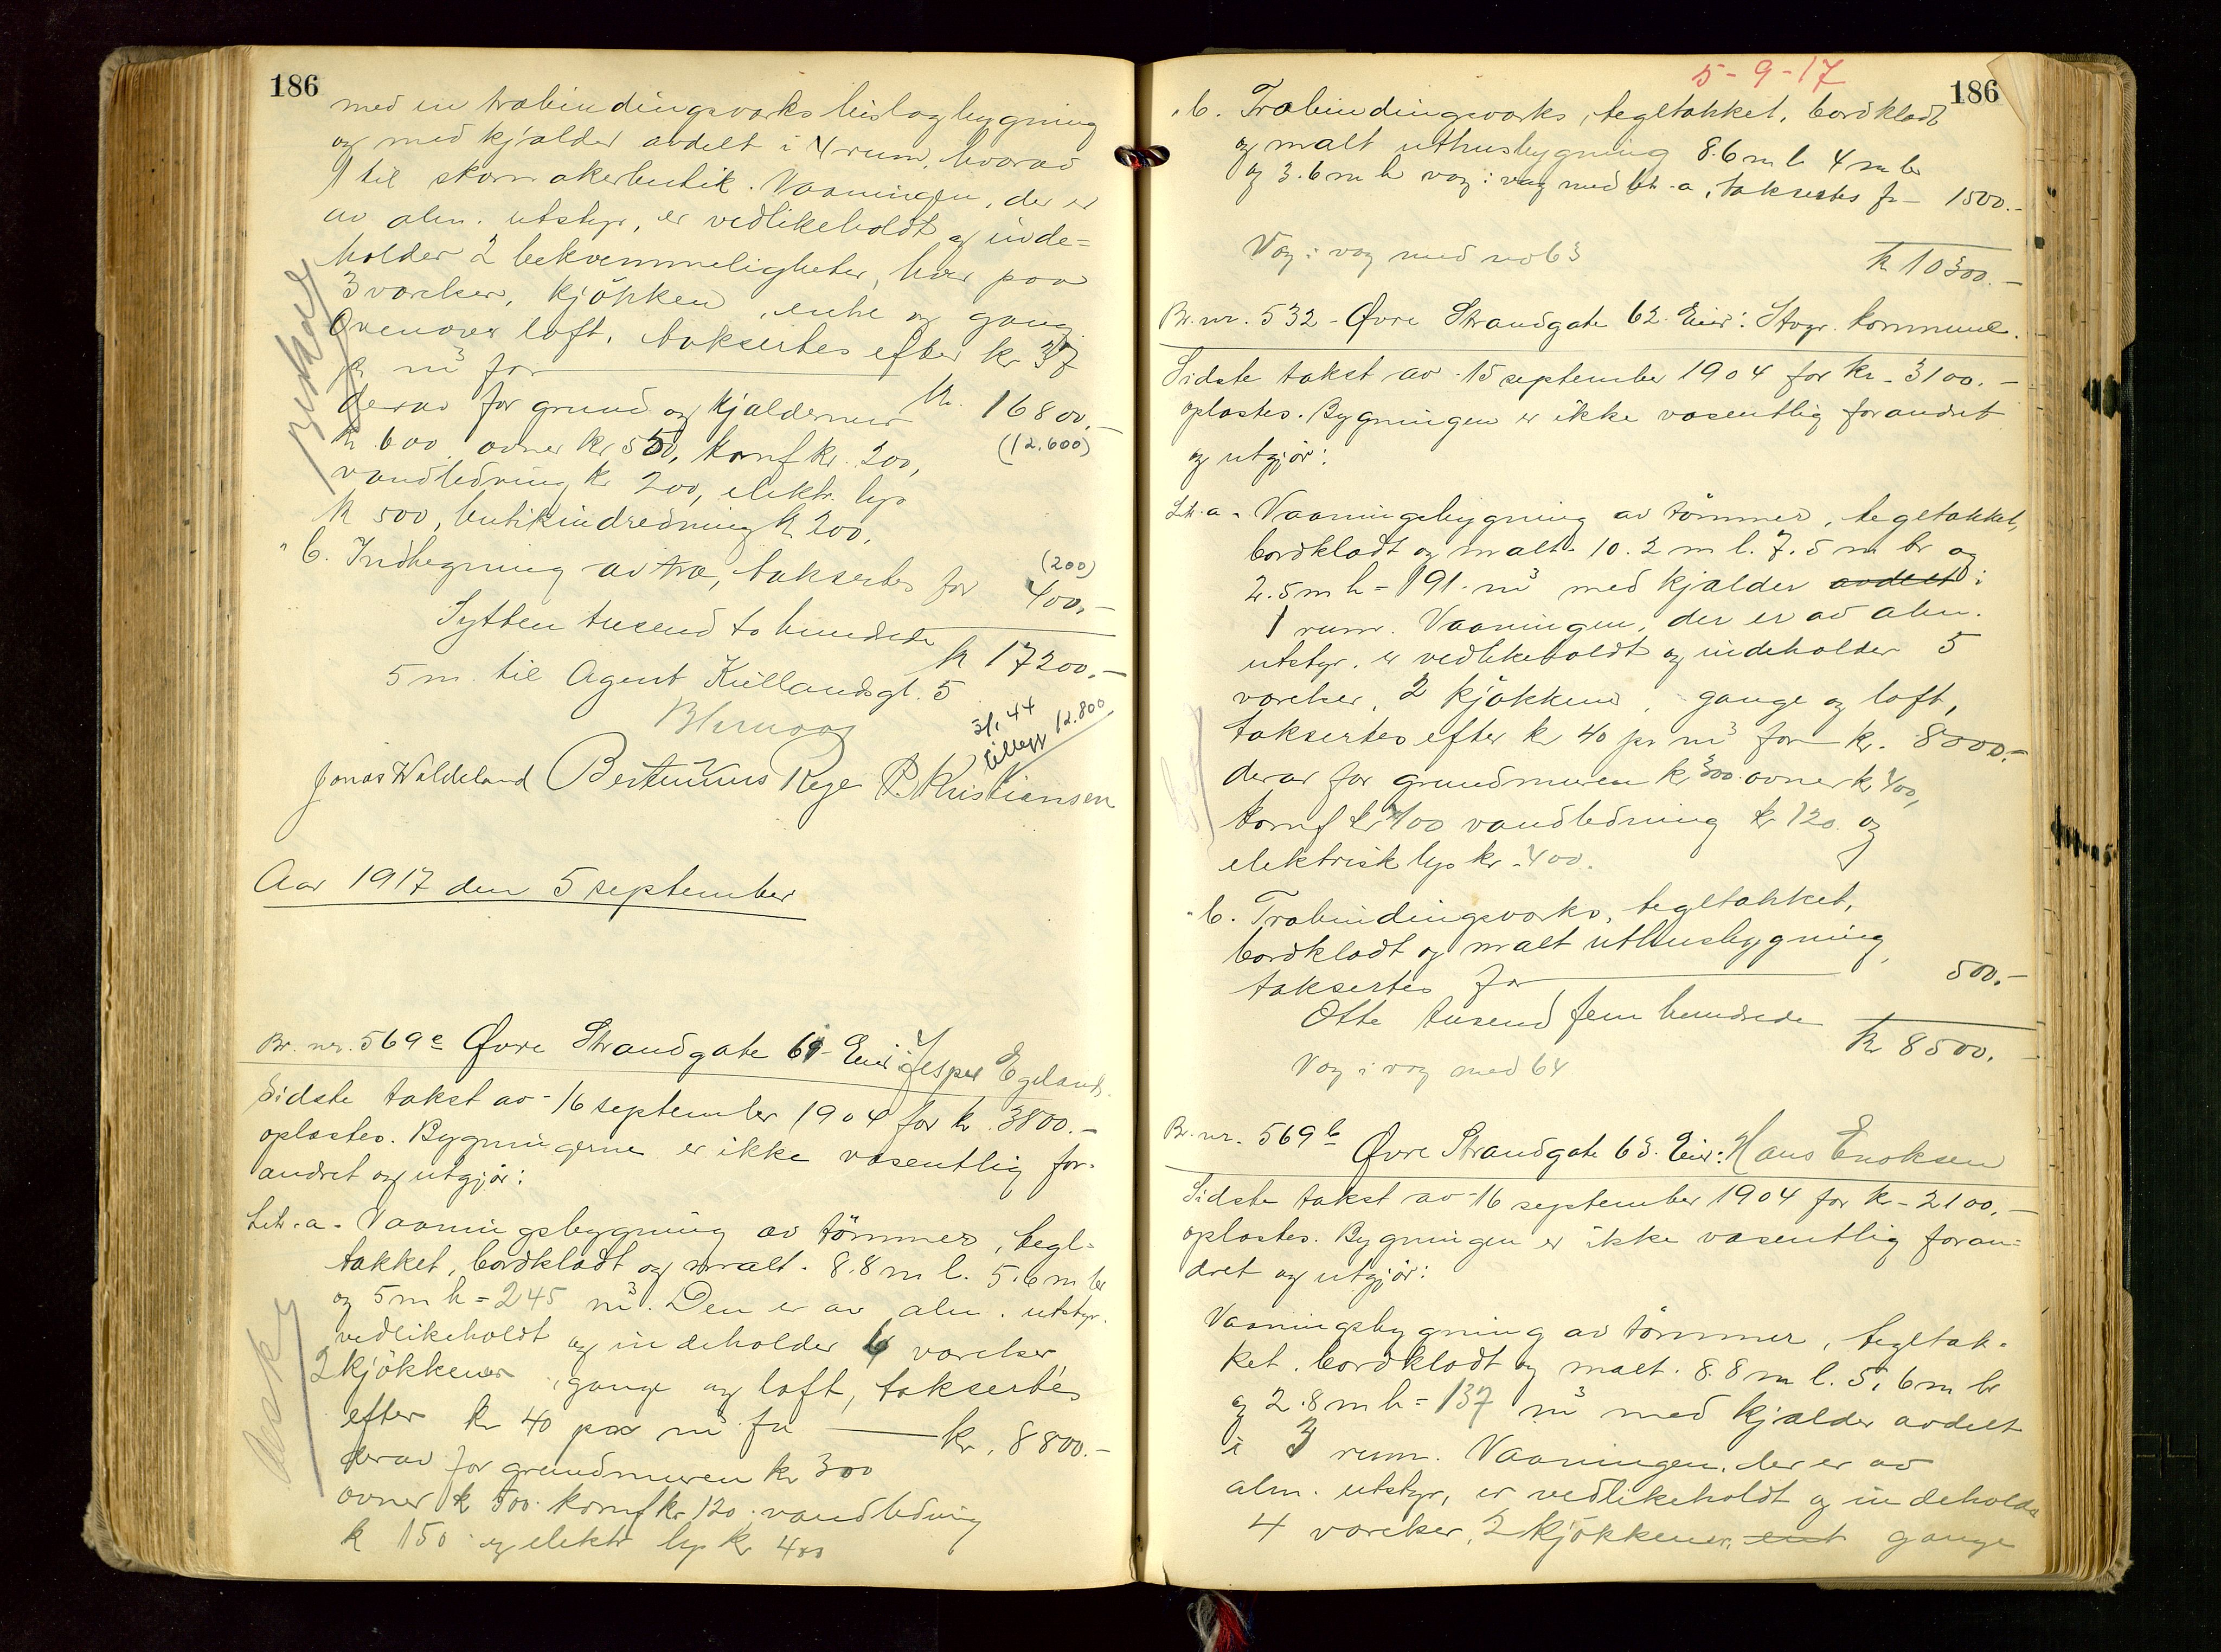 186
med en træbindingsverks bislagbygning
og med kjælder avdelt i 4 rum, hvorav
1 til skomakerbutik. Vaaningen, der er
av alm. utstyr, er vedlikeholdt og inde=
holder 2 bekvemmeligheter, hver paa
3 værelser, kjökken, entre og gang.
Ovenover loft, taksertes efter kr 37
pr m³ for kr. 16800.-
derav for grund og kjældermur (12.600)
kr 600, ovner kr 550, komf kr. 200,
vandledning kr 200, elektr. lys
kr 500, butikindredning kr 200.
" b. Indhegning av træ, taksertes for 400.-
(200)
Sytten tusend to hundrede kr 17200.-
5 m. til Agent Kiellandsgt. 5
3/1 44
tillegg 12.800
Jonas Waldeland Bertinius Rege P. Kristiansen
Aar 1917 den 5 september
Br. nr. 569c Øvre Strandgate 61 Eier: Jesper Egeland.
Sidste takst av 16 september 1904 for kr. 3800.-
oplæstes. Bygningerne er ikke væsentlig for-
andret og utgjör:
Litr. a. Vaaningsbygning av tömmer, tegl-
tækket, bordklædt og malt. 8.8 m l. 5.6 m br
og 5 m h = 245 m³. Den er av alm. utstyr.
vedlikeholdt og indeholder 6 værelser,
2 kjökkener, gange og loft, taksertes
efter kr 40 pr m³ for kr. 8800.-
derav for grundmuren kr 300
ovner kr 500. komf kr. 120. vandledning
kr 150 og elektr lys kr 400
5-9-17
186
" b. Træbindingsverks, tegltækket, bordklædt
og malt uthusbygning 8.6 m l 4 m br
og 3.6 m h væg i væg med litr. a, taksertes for 1500.-
kr 10300.-
Væg i væg med no 63
Br. nr. 532 - Øvre Strandgate 62. Eier: Stvgr. kommune.
Sidste takst av 15 september 1904 for kr. 3100.-
oplæstes. Bygningen er ikke væsentlig forandret
og utgjör:
Litr. a. Vaaningsbygning av tömmer, tegltækket,
bordklædt og malt. 10.2 m l. 7.5 m br og
2.5 m h = 191 m³ med kjælder avdelt i
1 rum. Vaaningen, der er av alm.
utstyr. er vedlikeholdt og indeholder 5
værelser, 2 kjökkener, gange og loft,
taksertes efter kr 40 pr m³ for kr. 8000.-
derav for grundmuren kr 300. ovner kr 400,
komf kr 100 vandledning kr 120. og
elektrisk lys kr. 400.
" b. Træbindingsverks, tegltækket,
bordklædt og malt uthusbygning,
taksertes for 500.-
Otte tusend fem hundrede kr 8500.-
Væg i væg med 64
Br. nr. 569b Øvre Strandgate 63. Eier: Hans Enoksen
Sidste takst av 16 september 1904 for kr. 2100.-
oplæstes. Bygningen er ikke væsentlig foran=
dret og utgjör:
Vaaningsbygning av tömmer, tegltæk-
ket. bordklædt og malt. 8.8 m l. 5.6 m br
og 2.8 m h = 137 m³ med kjælder avdelt
i 3 rum. Vaaningen, der er av
alm. utstyr, er vedlikeholdt og indeholder
4 værelser, 2 kjökkener, ent gange